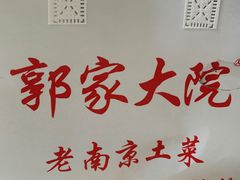 郭家大院
老南京土菜